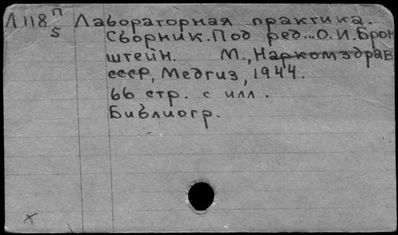 Л118 П/5 Лабораторная практика.
Сборник. Под ред... О.И. Брон
штейн. М., Наркомздрав
СССР, Медгиз, 1944.
66 стр. с илл.
Библиогр.
х